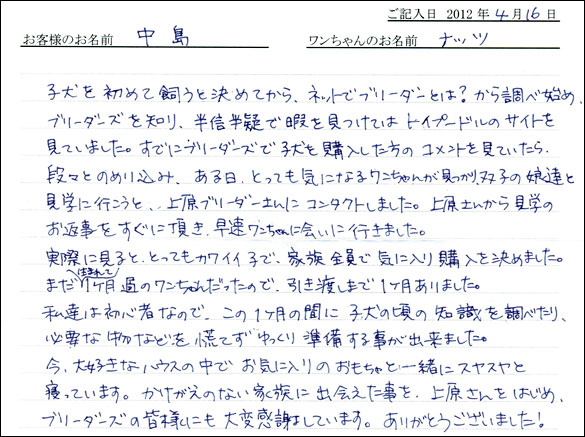 ご記入日 2012年4月16日
お客様のお名前 中島 ワンちゃんのお名前 ナッツ
子犬を初めて飼うと決めてから、ネットでブリーダーとは?から調べ始め、
ブリーダーズを知り、半信半疑で暇を見つけては トイプードルのサイトを
見ていました。すでにブリーダーズで子犬を購入した方の コメントを見ていたら、
段々とのめり込み、ある日、とっても気になるワンちゃんが見つかり、双子の娘達と
見学に行こうと、上原ブリーダーさんに コンタクトしました。上原さんから見学の
お返事をすぐに頂き、早速ワンちゃんに会いに行きました。
実際に見ると、とってもカワイイ子で、家族全員で気に入り購入を決めました。
まだ生まれて1ヶ月過のワンちゃんだったので、引き渡しまで1ヶ月ありました。
私達は初心者なので、この1ヶ月の間に子犬の頃の知識を調べたり、
必要な物などを慌てずゆっくり準備する事が出来ました。
今、大好きなハウスの中でお気に入りのおもちゃと一緒にスヤスヤと
寝っています。かけがえのない家族に出会えた事を、上原さんをはじめ、
ブリーダーズの皆様にも大変感謝しています。ありがとうございました!